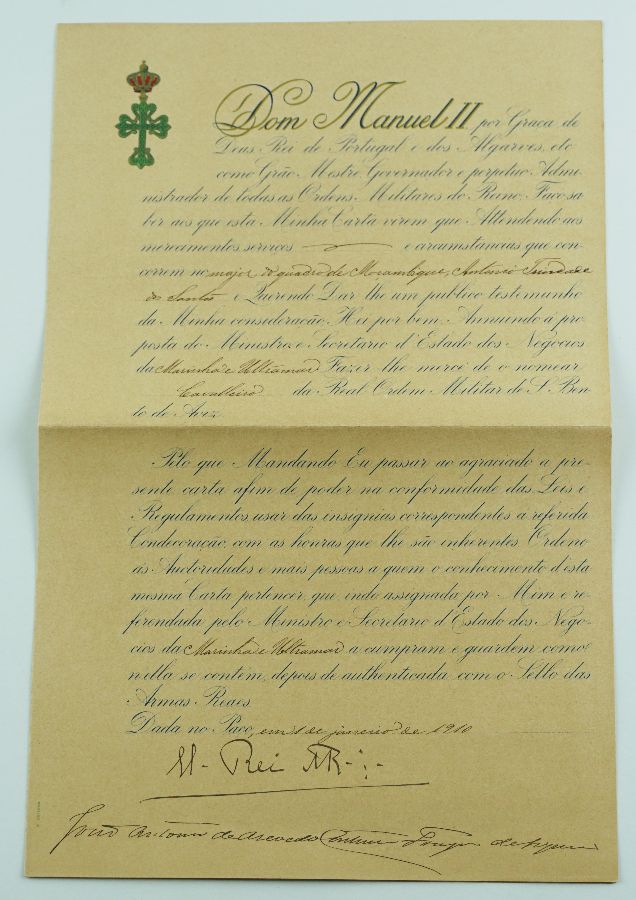 Dom Manuel II por Graça de
Deus Rei de Portugal e dos Algarves, etc
como Grão Mestre, Governador e perpetuo Admi-
nistrador de todas as Ordens Militares do Reino: Faço sa-
ber aos que esta Minha Carta virem que Attendendo aos
merecimentos serviços e circumstancias que con-
correm no major do quadro de Moçambique, Antonio Trindade
dos Santos e Querendo Dar lhe um publico testemunho
da Minha consideração: Hei por bem, Annuindo á pro-
posta do Ministro e Secretario d'Estado dos Negocios
da Marinha e Ultramar Fazer-lhe mercê de o nomear
Cavalleiro da Real Ordem Militar de S. Ben-
to de Aviz.
Pelo que Mandando Eu passar ao agraciado a pre-
sente carta afim de poder na conformidade das Leis e
Regulamentos, usar das insignias correspondentes á referida
Condecoração, com as honras que lhe são inherentes, Ordeno
ás Auctoridades e mais pessoas a quem o conhecimento d'esta
mesma Carta pertencer, que, indo assignada por Mim e re-
ferendada pelo Ministro e Secretario d'Estado dos Nego-
cios da Marinha e Ultramar a cumpram e guardem como
n'ella se contém, depois de authenticada com o Sello das
Armas Reaes.
Dada no Paço, em 1 de janeiro de 1910
El-Rei
João Antonio de Azevedo Coutinho Fragoso de Siqueira